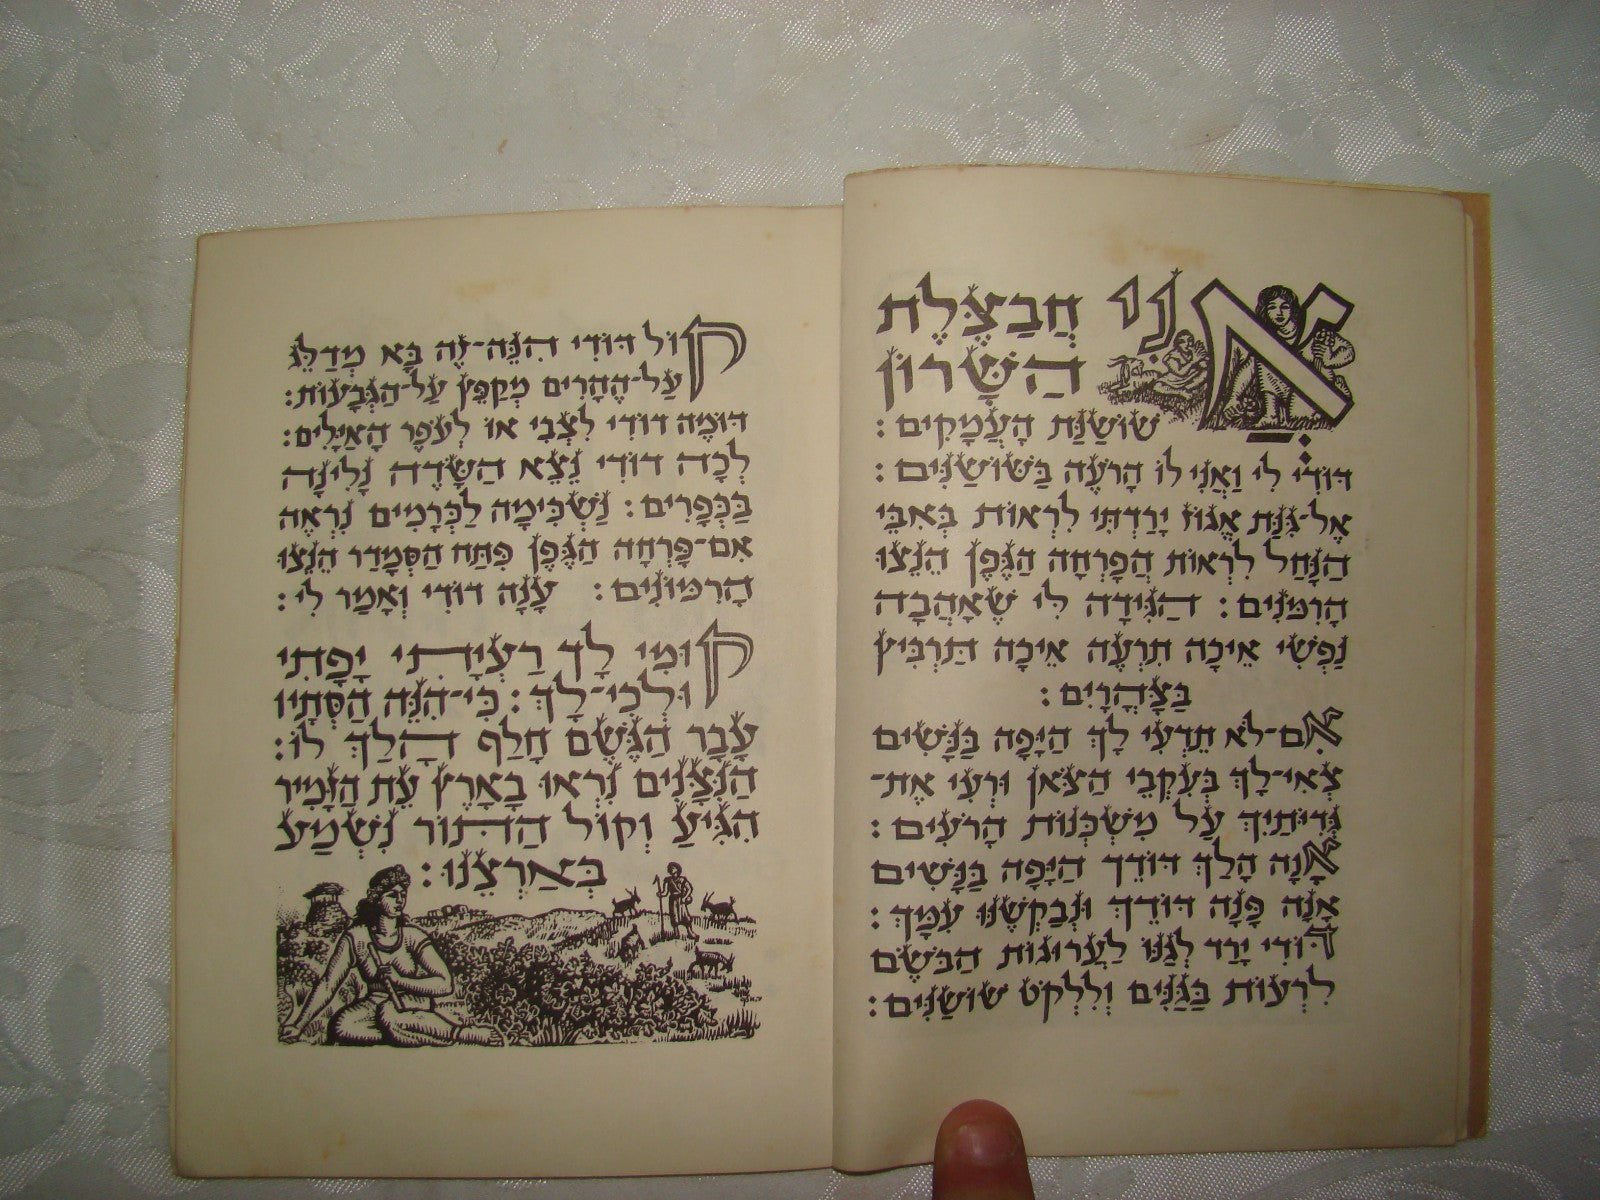 אֲנִי חֲבַצֶּלֶת
הַשָּׁרוֹן
שׁוֹשַׁנַּת הָעֲמָקִים:
דּוֹדִי לִי וַאֲנִי לוֹ הָרֹעֶה בַּשּׁוֹשַׁנִּים:
אֶל־גִּנַּת אֱגוֹז יָרַדְתִּי לִרְאוֹת בְּאִבֵּי
הַנָּחַל לִרְאוֹת הֲפָרְחָה הַגֶּפֶן הֵנֵצוּ
הָרִמֹּנִים: הַגִּידָה לִּי שֶׁאָהֲבָה
נַפְשִׁי אֵיכָה תִרְעֶה אֵיכָה תַּרְבִּיץ
בַּצָּהֳרָיִם:
אִם־לֹא תֵדְעִי לָךְ הַיָּפָה בַּנָּשִׁים
צְאִי־לָךְ בְּעִקְבֵי הַצֹּאן וּרְעִי אֶת־
גְּדִיֹּתַיִךְ עַל מִשְׁכְּנוֹת הָרֹעִים:
אָנָה הָלַךְ דּוֹדֵךְ הַיָּפָה בַּנָּשִׁים
אָנָה פָּנָה דוֹדֵךְ וּנְבַקְשֶׁנּוּ עִמָּךְ:
דּוֹדִי יָרַד לְגַנּוֹ לַעֲרוּגוֹת הַבֹּשֶׂם
לִרְעוֹת בַּגַּנִּים וְלִלְקֹט שׁוֹשַׁנִּים:
קוֹל דּוֹדִי הִנֵּה־זֶה בָּא מְדַלֵּג
עַל־הֶהָרִים מְקַפֵּץ עַל־הַגְּבָעוֹת:
דּוֹמֶה דוֹדִי לִצְבִי אוֹ לְעֹפֶר הָאַיָּלִים:
לְכָה דוֹדִי נֵצֵא הַשָּׂדֶה נָלִינָה
בַּכְּפָרִים: נַשְׁכִּימָה לַכְּרָמִים נִרְאֶה
אִם־פָּרְחָה הַגֶּפֶן פִּתַּח הַסְּמָדַר הֵנֵצוּ
הָרִמּוֹנִים: עָנָה דוֹדִי וְאָמַר לִי:
קוּמִי לָךְ רַעְיָתִי יָפָתִי
וּלְכִי־לָךְ: כִּי־הִנֵּה הַסְּתָיו
עָבָר הַגֶּשֶׁם חָלַף הָלַךְ לוֹ:
הַנִּצָּנִים נִרְאוּ בָאָרֶץ עֵת הַזָּמִיר
הִגִּיעַ וְקוֹל הַתּוֹר נִשְׁמַע
בְּאַרְצֵנוּ: